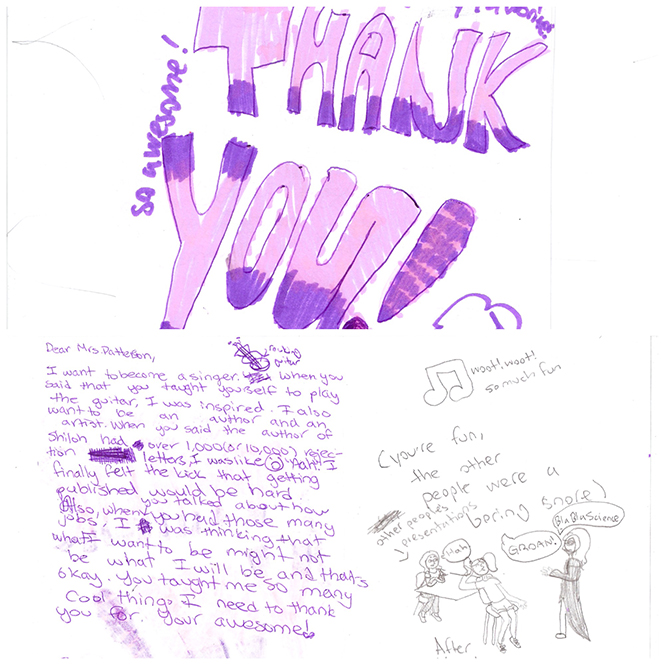 so awesome!
THANK
YOU!
Dear Mrs. Patterson,
guitar
I want to become a singer. When you
said that you taught yourself to play
the guitar, I was inspired. I also
want to be an author and an
artist. When you said the author of
Shiloh had over 1,000 (or 10,000) rejec-
tion letters, I was like
finally felt the kick that getting
published would be hard
Also, when you talked about how
you had those many
jobs. I was thinking that
what I want to be might not
be what I will be and that's
okay. You taught me so many
cool things I need to thank
you for. Your awesome!
woot! woot!
so much fun
(you're fun,
the other
people were a
boring snore)
other peoples
presentations
Bla Bla Science
GROAN!
After